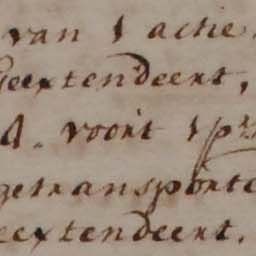 van 1 actie.
Geextendeert,
d. voort 1 pr
getransporte
eextendeert.